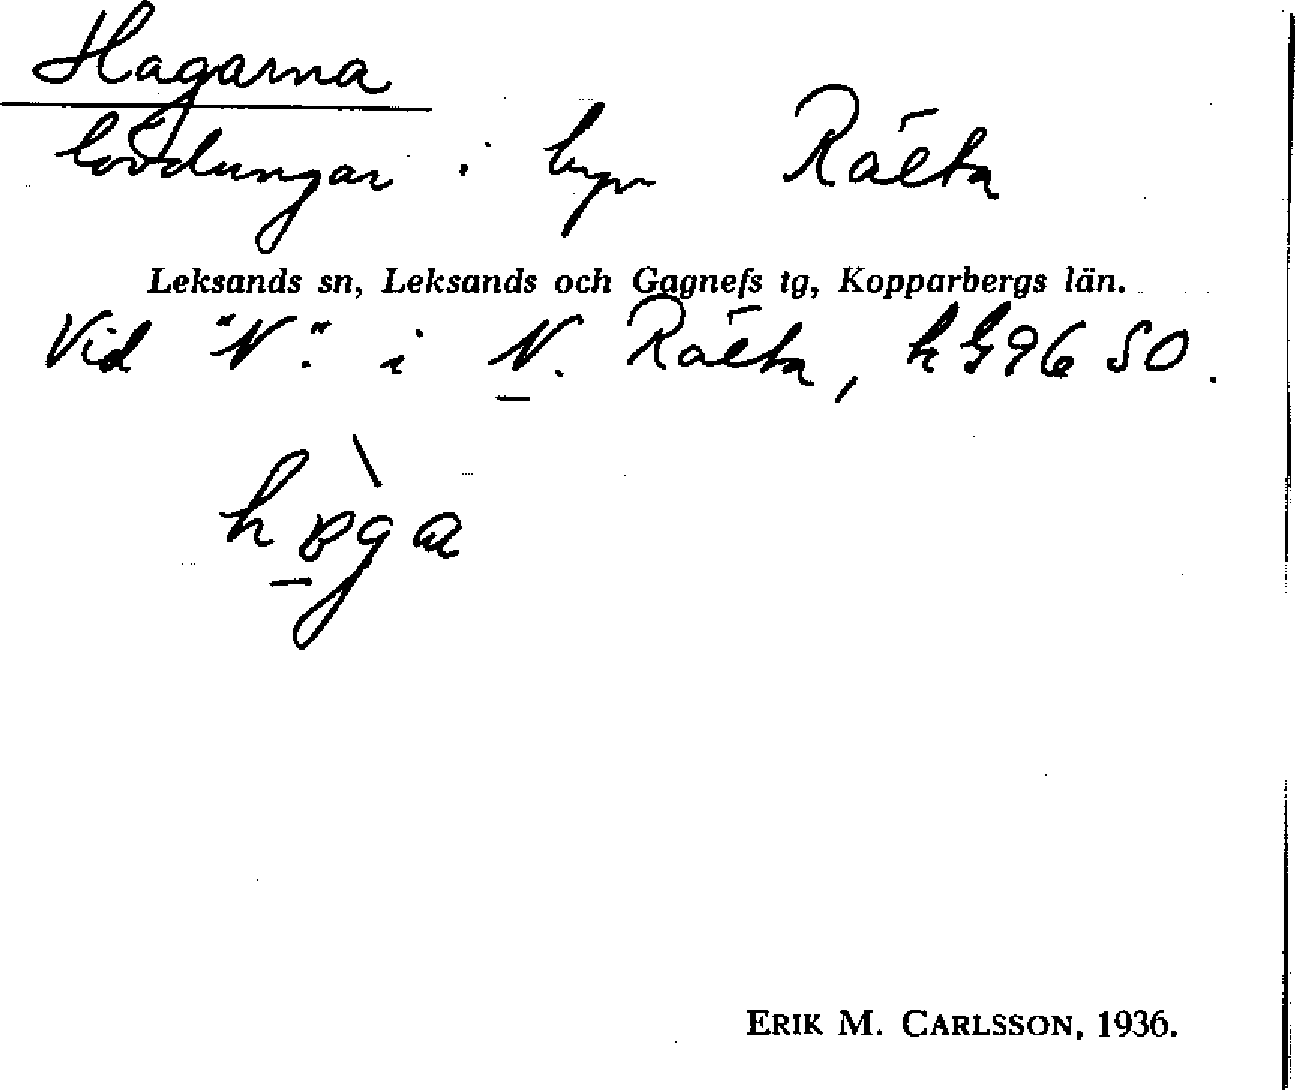 Hagarna
lövdungar i byn Rälta
Leksands sn, Leksands och Gagnefs tg, Kopparbergs län.
Vid "N". i N. Rälta,
ERIK M. CARLSSON, 1936.